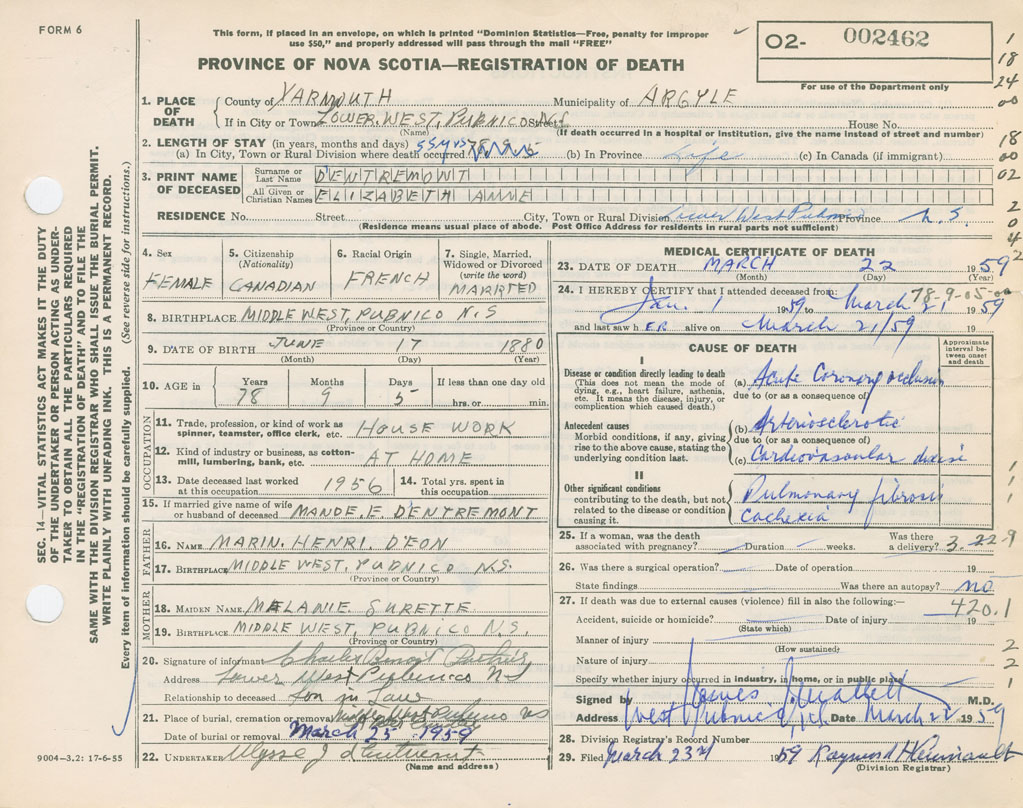 FORM 6
This form, if placed in an envelope, on which is printed "Dominion Statistics—Free, penalty for improper
use $50," and properly addressed will pass through the mail "FREE"
PROVINCE OF NOVA SCOTIA—REGISTRATION OF DEATH
O2- 002462
For use of the Department only
1
18
24
00
18
00
02
2
0
4
2
SEC. 14—VITAL STATISTICS ACT MAKES IT THE DUTY
OF THE UNDERTAKER OR PERSON ACTING AS UNDER-
TAKER TO OBTAIN ALL THE PARTICULARS REQUIRED
IN THE "REGISTRATION OF DEATH" AND TO FILE THE
SAME WITH THE DIVISION REGISTRAR WHO SHALL ISSUE THE BURIAL PERMIT.
WRITE PLAINLY WITH UNFADING INK. THIS IS A PERMANENT RECORD.
Every item of information should be carefully supplied. (See reverse side for instructions.)
1. PLACE OF DEATH County of YARMOUTH Municipality of ARGYLE
If in City or Town LOWER. WEST. PUBNICO Street N.S House No.
(Name) (If death occurred in a hospital or institution, give the name instead of street and number)
2. LENGTH OF STAY (in years, months and days)
(a) In City, Town or Rural Division where death occurred 55 yrs (b) In Province Life (c) In Canada (if immigrant)
3. PRINT NAME OF DECEASED Surname or Last Name DENTREMONT
All Given or Christian Names ELIZABETH ANNE
RESIDENCE No. Street City, Town or Rural Division Lower West Pubnico Province N.S.
(Residence means usual place of abode. Post Office Address for residents in rural parts not sufficient)
4. Sex FEMALE
5. Citizenship (Nationality) CANADIAN
6. Racial Origin FRENCH
7. Single, Married, Widowed or Divorced (write the word) MARRIED
8. BIRTHPLACE MIDDLE WEST, PUBNICO N.S
(Province or Country)
9. DATE OF BIRTH JUNE 17 1880
(Month) (Day) (Year)
10. AGE in Years 78 Months 9 Days 5 If less than one day old hrs. or min.
OCCUPATION
11. Trade, profession, or kind of work as spinner, teamster, office clerk, etc. HOUSE WORK
12. Kind of industry or business, as cotton-mill, lumbering, bank, etc. AT HOME
13. Date deceased last worked at this occupation 1956 14. Total yrs. spent in this occupation
15. If married give name of wife or husband of deceased MANDE. E. D'ENTREMONT
FATHER
16. NAME MARIN. HENRI. D'EON
17. BIRTHPLACE MIDDLE WEST, PUBNICO N.S.
(Province or Country)
MOTHER
18. MAIDEN NAME MELANIE SURETTE
19. BIRTHPLACE MIDDLE WEST, PUBNICO N.S.
(Province or Country)
20. Signature of informant Charles Benoit
Address Lower West Pubnico NS
Relationship to deceased Son in Law
21. Place of burial, cremation or removal Middle West Pubnico NS
Date of burial or removal March 25 1959
22. UNDERTAKER Ulysse J d'Entremont
(Name and address)
9004—3.2: 17-6-55
MEDICAL CERTIFICATE OF DEATH
23. DATE OF DEATH MARCH 22 1959
(Month) (Day) (Year)
24. I HEREBY CERTIFY that I attended deceased from: 78-9-05-00
Jan. 1 1959 to March 21 1959
and last saw h ER alive on March 21/59 19
CAUSE OF DEATH
Approximate interval between onset and death
I
Disease or condition directly leading to death
(This does not mean the mode of dying, e.g., heart failure, asthenia, etc. It means the disease, injury, or complication which caused death.)
(a) Acute Coronary occlusion
due to (or as a consequence of)
Antecedent causes
Morbid conditions, if any, giving rise to the above cause, stating the underlying condition last.
(b) Arteriosclerotic
due to (or as a consequence of)
(c) Cardiovascular disease
II
Other significant conditions
contributing to the death, but not related to the disease or condition causing it.
Pulmonary fibrosis
Cachexia
1
1
1
25. If a woman, was the death associated with pregnancy? Duration weeks. Was there a delivery? 3-22-9
26. Was there a surgical operation? Date of operation 19
State findings Was there an autopsy? no
27. If death was due to external causes (violence) fill in also the following:— 420.1
Accident, suicide or homicide? Date of injury 19
(State which)
Manner of injury 2
(How sustained)
Nature of injury 2
Specify whether injury occurred in industry, in home, or in public place 1
Signed by M.D.
Address West Pubnico, Date March 22 1959
28. Division Registry's Record Number
29. Filed March 23rd 1959 Raymond
(Division Registrar)